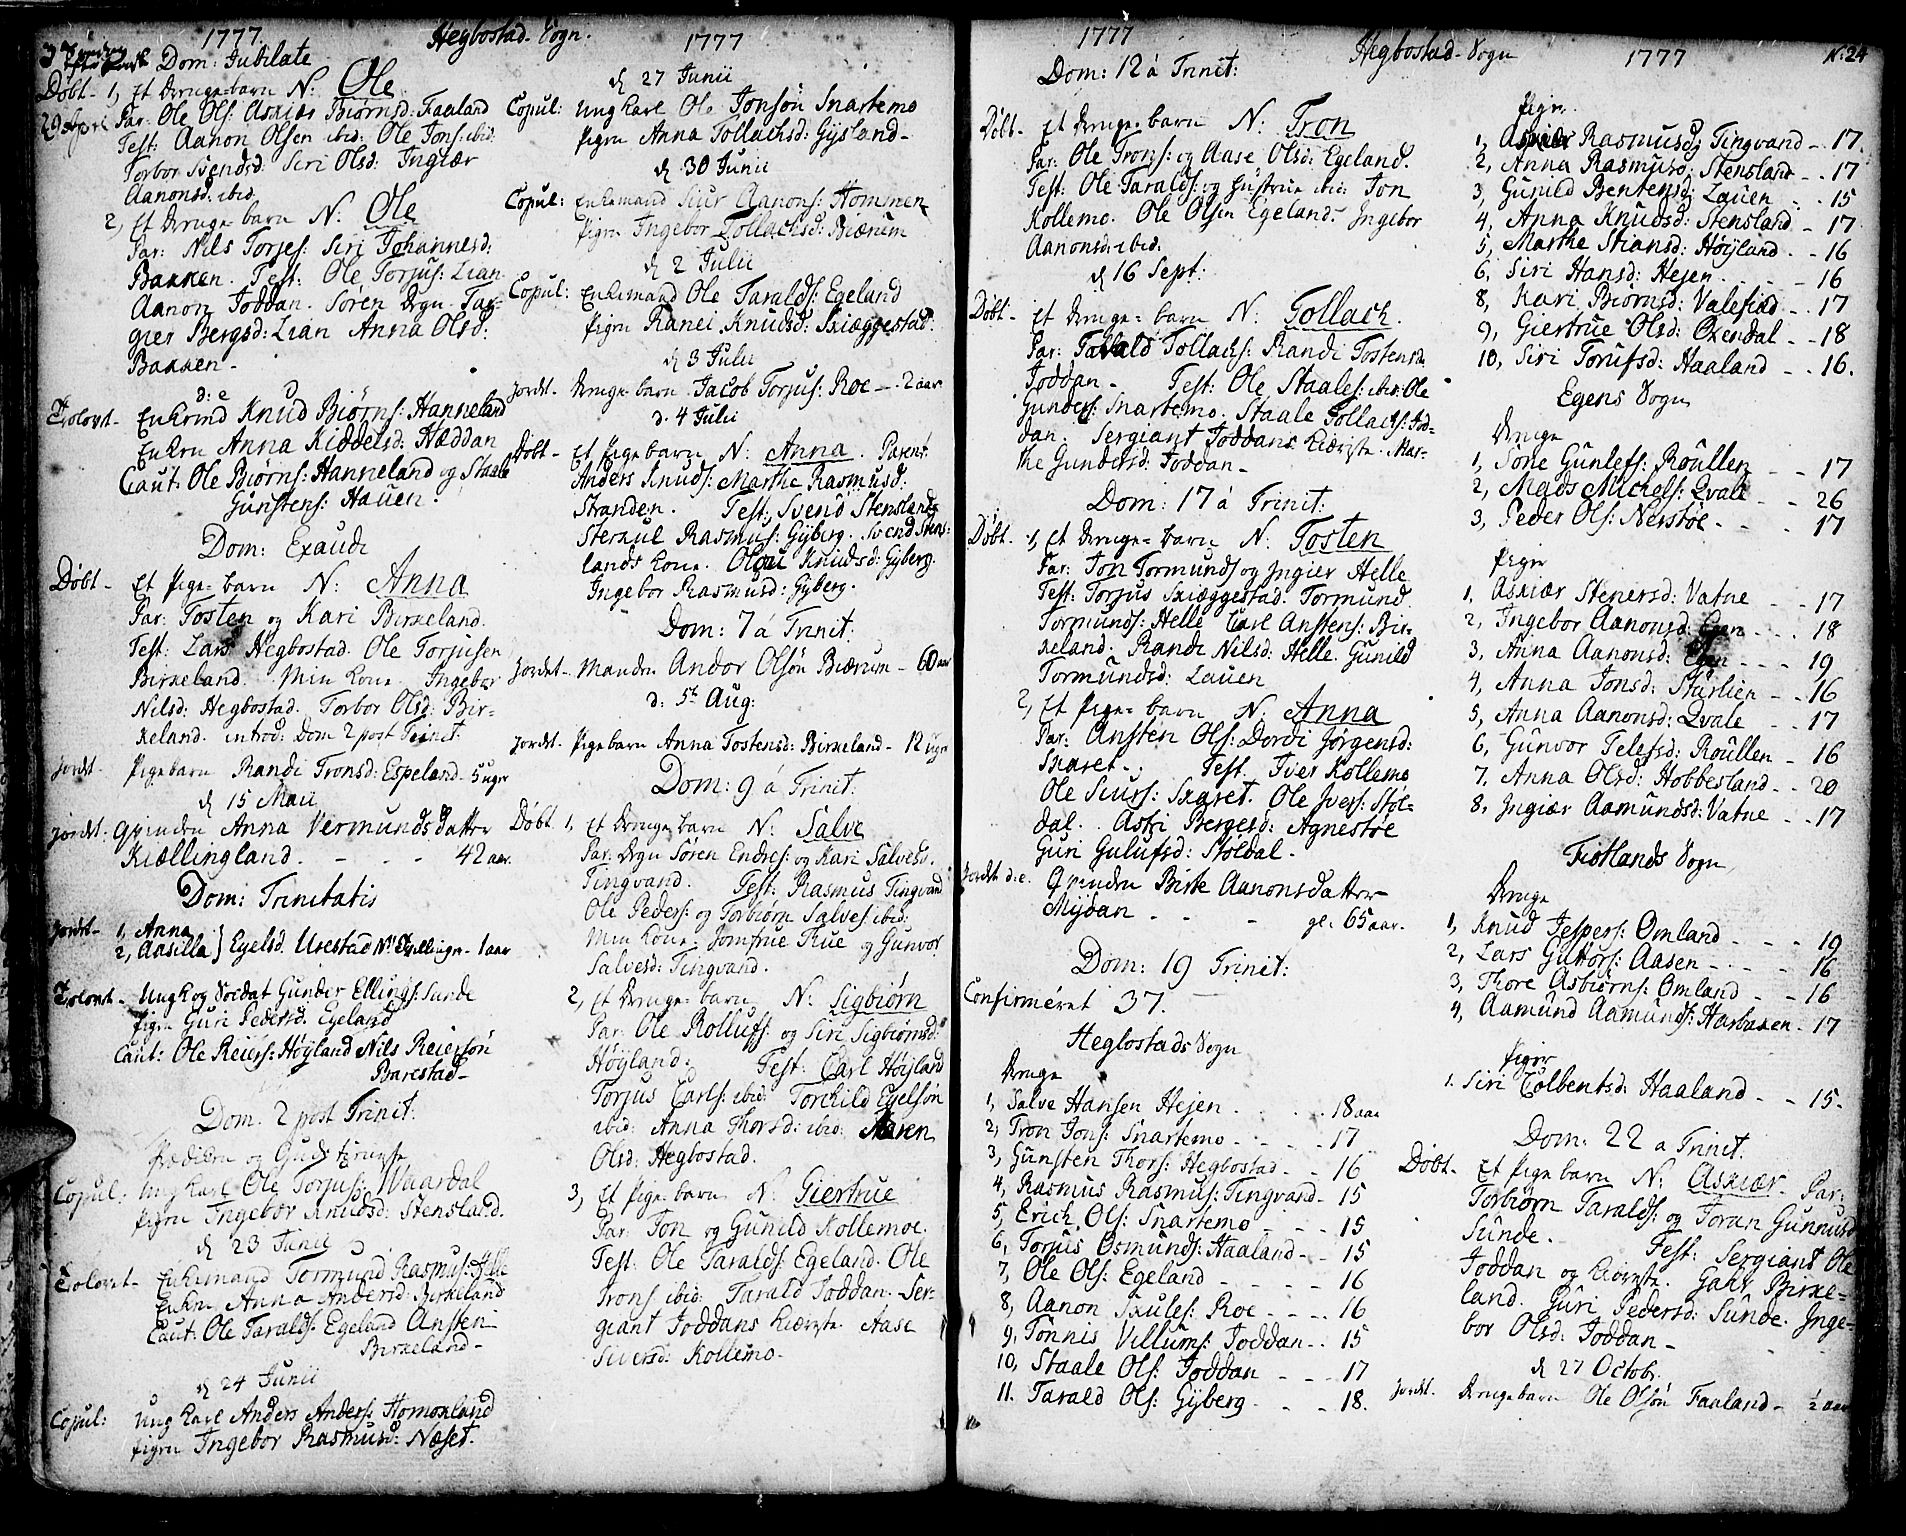 1777 Hegbostad-Sogn. 1777
3 Søndag efter Pasch Dom: Jubilate
Døbt- 1, Et drenge-barn N: Ole
20 April Par: Ole Ols: Askiær Biørnsd: Faaland
Test: Aanon Olsen ibid: Ole Jons: ibid:
Torbor Svendsd: Siri Olsd: Ingiær
Aanonsd: ibid.
2, Et drenge barn N: Ole
Par: Nils Torjes: Siri Johannesd:
Bakken. Test: Ole Torjus: Lian
Aanon Joddan. Søren degn. Tar-
gier Bergsd: Lian Anna Olsd:
Bakken-
d: e
Trolovt- Enkemd Knud Biørns: Hanneland
Enken Anna Kiddelsd: Hæddan
Caut: Ole Biørns: Hanneland og Staale
Gunstens: Hauen.
Dom: Exaudi
Døbt- Et Pige-barn N: Anna
Par: Tosten og Kari Birkeland.
Test: Lars Hegbostad. Ole Torjusen
Birkeland. Min kone Ingebor
Nilsd: Hegbostad. Torbor Olsd: Bir-
keland. introd: Dom 2 post Trinit.
Jordt- Pigebarn Randi Tronsd: Espeland- 5 uger
d 15 Maii
Jordt- Qvinden Anna Vermundsdatter
Kiællingland. - - - 42 aar.
Dom: Trinitatis
Jordt- 1, Anna
2, Aasilla } Egelsd. Urestad Tvillinger- 1 aar
Trolovet- Ungk og Soldat Gunder Ellings: Sunde
Pigen Guri Pedersd: Egeland
Caut: Ole Reiers: Høyland Nils Reiersøn
Barestad-
Dom: 2 post Trinit:
Prædiken og Guds tieneste
Copul: Ung karl Ole Torjus: Waardal
Pigen Ingebor Knudsd: Stensland.
d 23 Junii
Trolovet- Enkemand Tormund Rasmus: Helle
Enken Anna Andersd: Birkeland
Caut: Ole Taralds: Egeland Ansten
Birkeland-
d 24 Junii
Copul: Ung karl Anders Anders: Homonland
Pigen Ingebor Rasmusd: Næset.
d 27 Junii
Copul: Ung karl Ole Jonsøn Snartemo
Pigen Anna Tollachsd: Gysland-
d 30 Junii
Copul: Enkemand Siur Aanons: Hommen
Pigen Ingebor Tollachsd: Biærum
d 2 Julii
Copul: Enkemand Ole Taralds: Egeland
Pigen Ranei Knudsd: Skiæggestad.
d 3 Julii
Jordt- Drenge-barn Jacob Torjus: Roe - 2 aar
d. 4 Julii
Døbt- Et Pige barn N: Anna. Parent:
Anders Knuds: Marthe Rasmusd:
Stranden. Test: Svend Stensland
Sterkul Rasmus: Gyberg. Svend Stens-
lands kone. Olou Knudsd: Gyberg.
Ingebor Rasmusd: Gyberg.
Dom: 7 á Trinit:
Jordt- Manden Andor Olsøn Biærum - 60 aar
d: 5t Aug:
Jordt- Pigebarn Anna Tostensd: Birkeland- 12 uger
Dom: 9 á Trinit:
Døbt 1, Et drenge-barn N: Salve
Par: Degn Søren Endres: og Kari Salvesd.
Tingvand. Test: Rasmus Tingvand
Ole Peders: og Torbiørn Salves: ibid:
Min kone. Jomfrue Thue og Gunvor
Salvesd: Tingvand.
2, Et drenge-barn N: Sigbiørn
Par: Ole Rollufs: og Siri Sigbiørnsd:
Høyland: Test: Carl Høyland
Torjus Carls: ibid: Torkild Egelsøn
ibid: Anna Thorsd: ibid: Maren
Olsd: Hegbostad.
3, Et Pige-barn N: Giertrue
Par: Jon og Gunild Kollemoe.
Test: Ole Taralds: Egeland. Ole
Trons: ibid: Tarald Joddan. Ser-
giant Joddans kiæreste. Aase
Siversd: Kollemo-
1777 Hegbostad-Sogn 1777 No: 24
Dom: 12 á Trinit:
Døbt- Et drenge-barn N: Tron
Par: Ole Trons: og Aase Olsd: Egeland.
Test: Ole Taralds: og Hustrue ibid: Jon
Kollemo. Ole Olsen Egeland. Ingebor
Aanonsd: ibid:
d 16 Sept:
Døbt- Et drenge-barn N: Tollach.
Par: Tarald Tollachs: Randi Tostensd:
Joddan- Test: Ole Staales: ibid: Ole
Gunders: Snartemo. Staale Tollachs: Jod-
dan. Sergiant Joddans kiæreste. Mar-
the Gundersd: Joddan-
Dom: 17 á Trinit:
Døbt- 1, Et drenge-barn N: Tosten
Par: Jon Tormunds: og Ingier Helle
Test: Torjus Skiæggestad. Tormund
Tormunds: Helle Carl Anstens: Bir-
keland. Randi Nilsd: Helle. Gunild
Tormundsd: Lauen
2, Et Pige-barn N: Anna
Par: Ansten Ols: Dordi Jørgensd:
Skaret. Test. Iver Kollemo
Ole Siurs: Skaret. Ole Ivers: Støl-
dal. Astri Bergesd: Agnestøe
Guri Gulufsd: Støldal.
Jordt d: e. Qvinden Birte Aanonsdatter
Mydan - - - gl: 65 aar.
Dom: 19 Trinit:
Confirméret 37.
Hegbostads Sogn
Drenge
1, Salve Hansen Hejen - - 18 aar
2, Tron Jons: Snartemo - - 17
3, Gunsten Thors: Hegbostad - - 16
4, Rasmus Rasmus: Tingvand- 15
5, Erich Ols: Snartemo - - 15
6, Torjus Osmunds: Haaland - - 15
7, Ole Ols: Egeland - - - 16
8, Aanon Skules: Roe - - - 16
9, Tønnis Villums: Joddan - - 15
10, Staale Ols: Joddan - - - 17
11. Tarald Ols: Gyberg - - - 18.
Piger
1, Askier Rasmusd: Tingvand - - 17.
2, Anna Rasmusd: Stensland - - 17
3, Gunild Bentensd: Lauen - - 15
4, Anna Knudsd: Stensland - - 17
5, Marthe Stiansd: Høyland - - 16
6, Siri Hansd: Hejen - - 16
8, Kari Biørnsd: Valefiæd - - 17
9, Giertrue Olsd: Oxendal - - 18
10, Siri Torufsd: Haaland - - 16.
Egens Sogn
Drenge
1, Sone Gunlefs: Roullen - - 17
2, Mads Michels: Qvale - - 26
3, Peder Ols: Nesstøe - - - 17
Piger
1. Askiær Stenersd: Vatne - - 17
2, Ingebor Aanonsd: Egen - - - 18
3, Anna Aanonsd: Egen - - - 19
4, Anna Jonsd: Stursien - - 16
5, Anna Aanonsd: Qvale - - 17
6, Gunvor Telefsd: Roullen - - 16
7. Anna Olsd: Hobbesland - - 20
8, Ingiær Aamundsd: Vatne - - 17
Fiotlands Sogn
Drenge
1, Knud Jespers: Omland - - - 19
2, Lars Guttors: Aasen - - - 16
3, Thore Asbiørns: Omland - - 16
4, Aamund Aamunds: Harbakken - 17
Piger
1. Siri Tolbentsd: Haaland - - 15.
Dom: 22 a Trinit.
Døbt- Et Pige barn N: Askiær. Par:
Torbiørn Taralds: og Joran Gunnusd
Sunde. Test: Sergiant Ole
Joddan og kiæreste. Gabr. Birke-
land. Guri Pedersd: Sunde. Inge-
bor Olsd: Joddan-
d 27 Octobr.
Jordt. Drengebarn Ole Olsøn Faaland- ½ aar